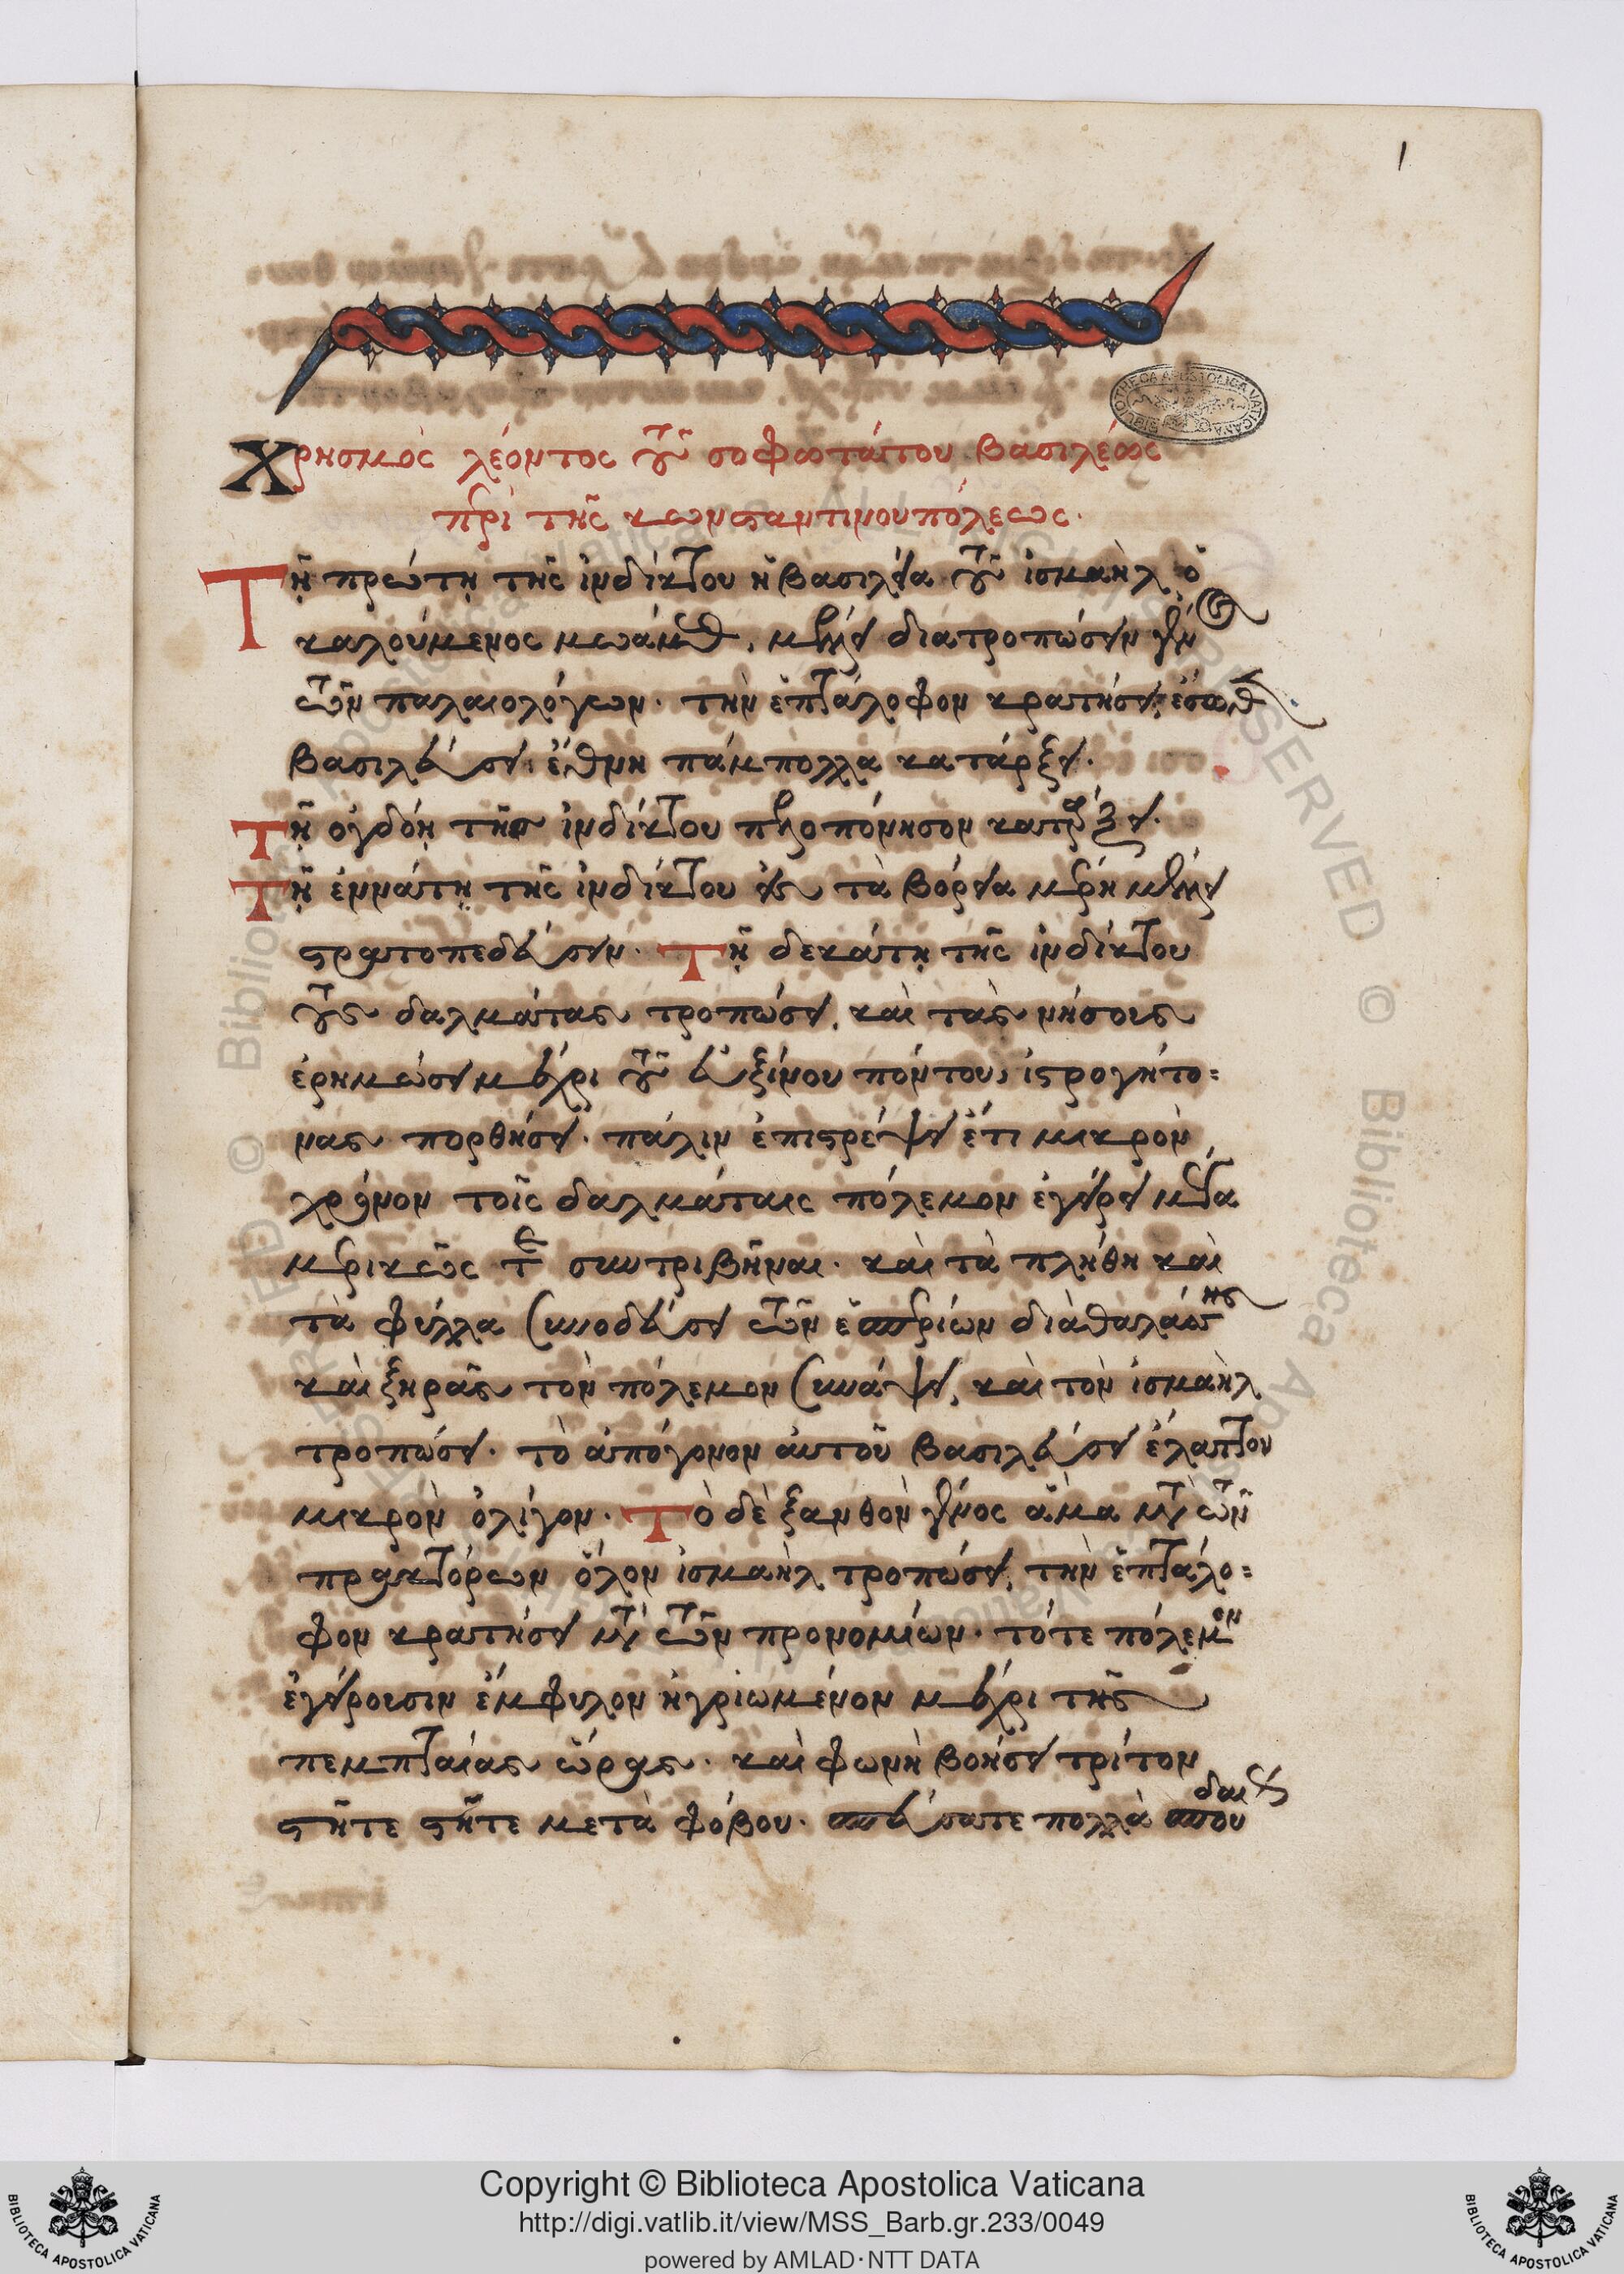 1
Χρησμὸς λέοντος τοῦ σοφωτάτου βασιλέως
περὶ τῆς κωνσταντινουπόλεως.
Τῇ πρώτῃ τῆς ἰνδίκτου ἡ βασιλεία τοῦ ἰσμαὴλ ὁ
καλούμενος μωάμεθ, μέλλει διατροπώσειν γένος
τῶν παλαιολόγων. τὴν ἑπτάλοφον κρατήσει, ἔσωθεν
βασιλεύσει, ἔθνη πάμπολλα κατάρξει.
Τῇ ὀγδόῃ τῆς ἰνδίκτου πελοπόνησον
Τῇ ἐννάτῃ τῆς ἰνδίκτου εἰς τὰ βόρεια μέρη μέλλει
στρατοπεδεύσειν. Τῇ δεκάτῃ τῆς ἰνδίκτου
τοὺς δαλμάτας τροπώσει, καὶ τὰς νήσους
ἐρημώσει μέχρι τοῦ εὐξίνου πόντου, ἰστρογήτο=
νας πορθήσει. πάλιν ἐπιστρέψει ἔτι μικρὸν
χρόνον τοῖς δαλμάταις πόλεμον ἐγείρει μέγα
μερικῶς τε συντριβῆναι. καὶ τὰ πλήθη καὶ
τὰ φύλλα συνοδεύσει τῶν ἑσπερίων διὰ θαλάσσης
καὶ ξηρᾶς τὸν πόλεμον συνάψει, καὶ τὸν ἰσμαὴλ
τροπώσει. τὸ ἀπόγονον αὐτοῦ βασιλεύσει ἔλαττον
μικρὸν ὀλίγον. Τὸ δὲ ξανθὸν γένος ἅμα μετὰ τῶν
πρακτόρων ὅλον ἰσμαὴλ τροπώσει, τὴν ἑπτάλο=
φον κρατήσει μετὰ τῶν προνομίων. τότε πόλεμον
ἐγείρουσιν ἔμφυλον ἠγριωμένον μέχρι τῆς
πεμπταίας ὥρας. καὶ φωνὴ βοήσει τρίτον
στῆτε στῆτε μετὰ φόβου. σπεύσατε πολλὰ σπουδαίως
Copyright © Biblioteca Apostolica Vaticana
http://digi.vatlib.it/view/MSS_Barb.gr.233/0049
powered by AMLAD·NTT DATA
BIBLIOTECA APOSTOLICA VATICANA
BIBLIOTECA APOSTOLICA VATICANA